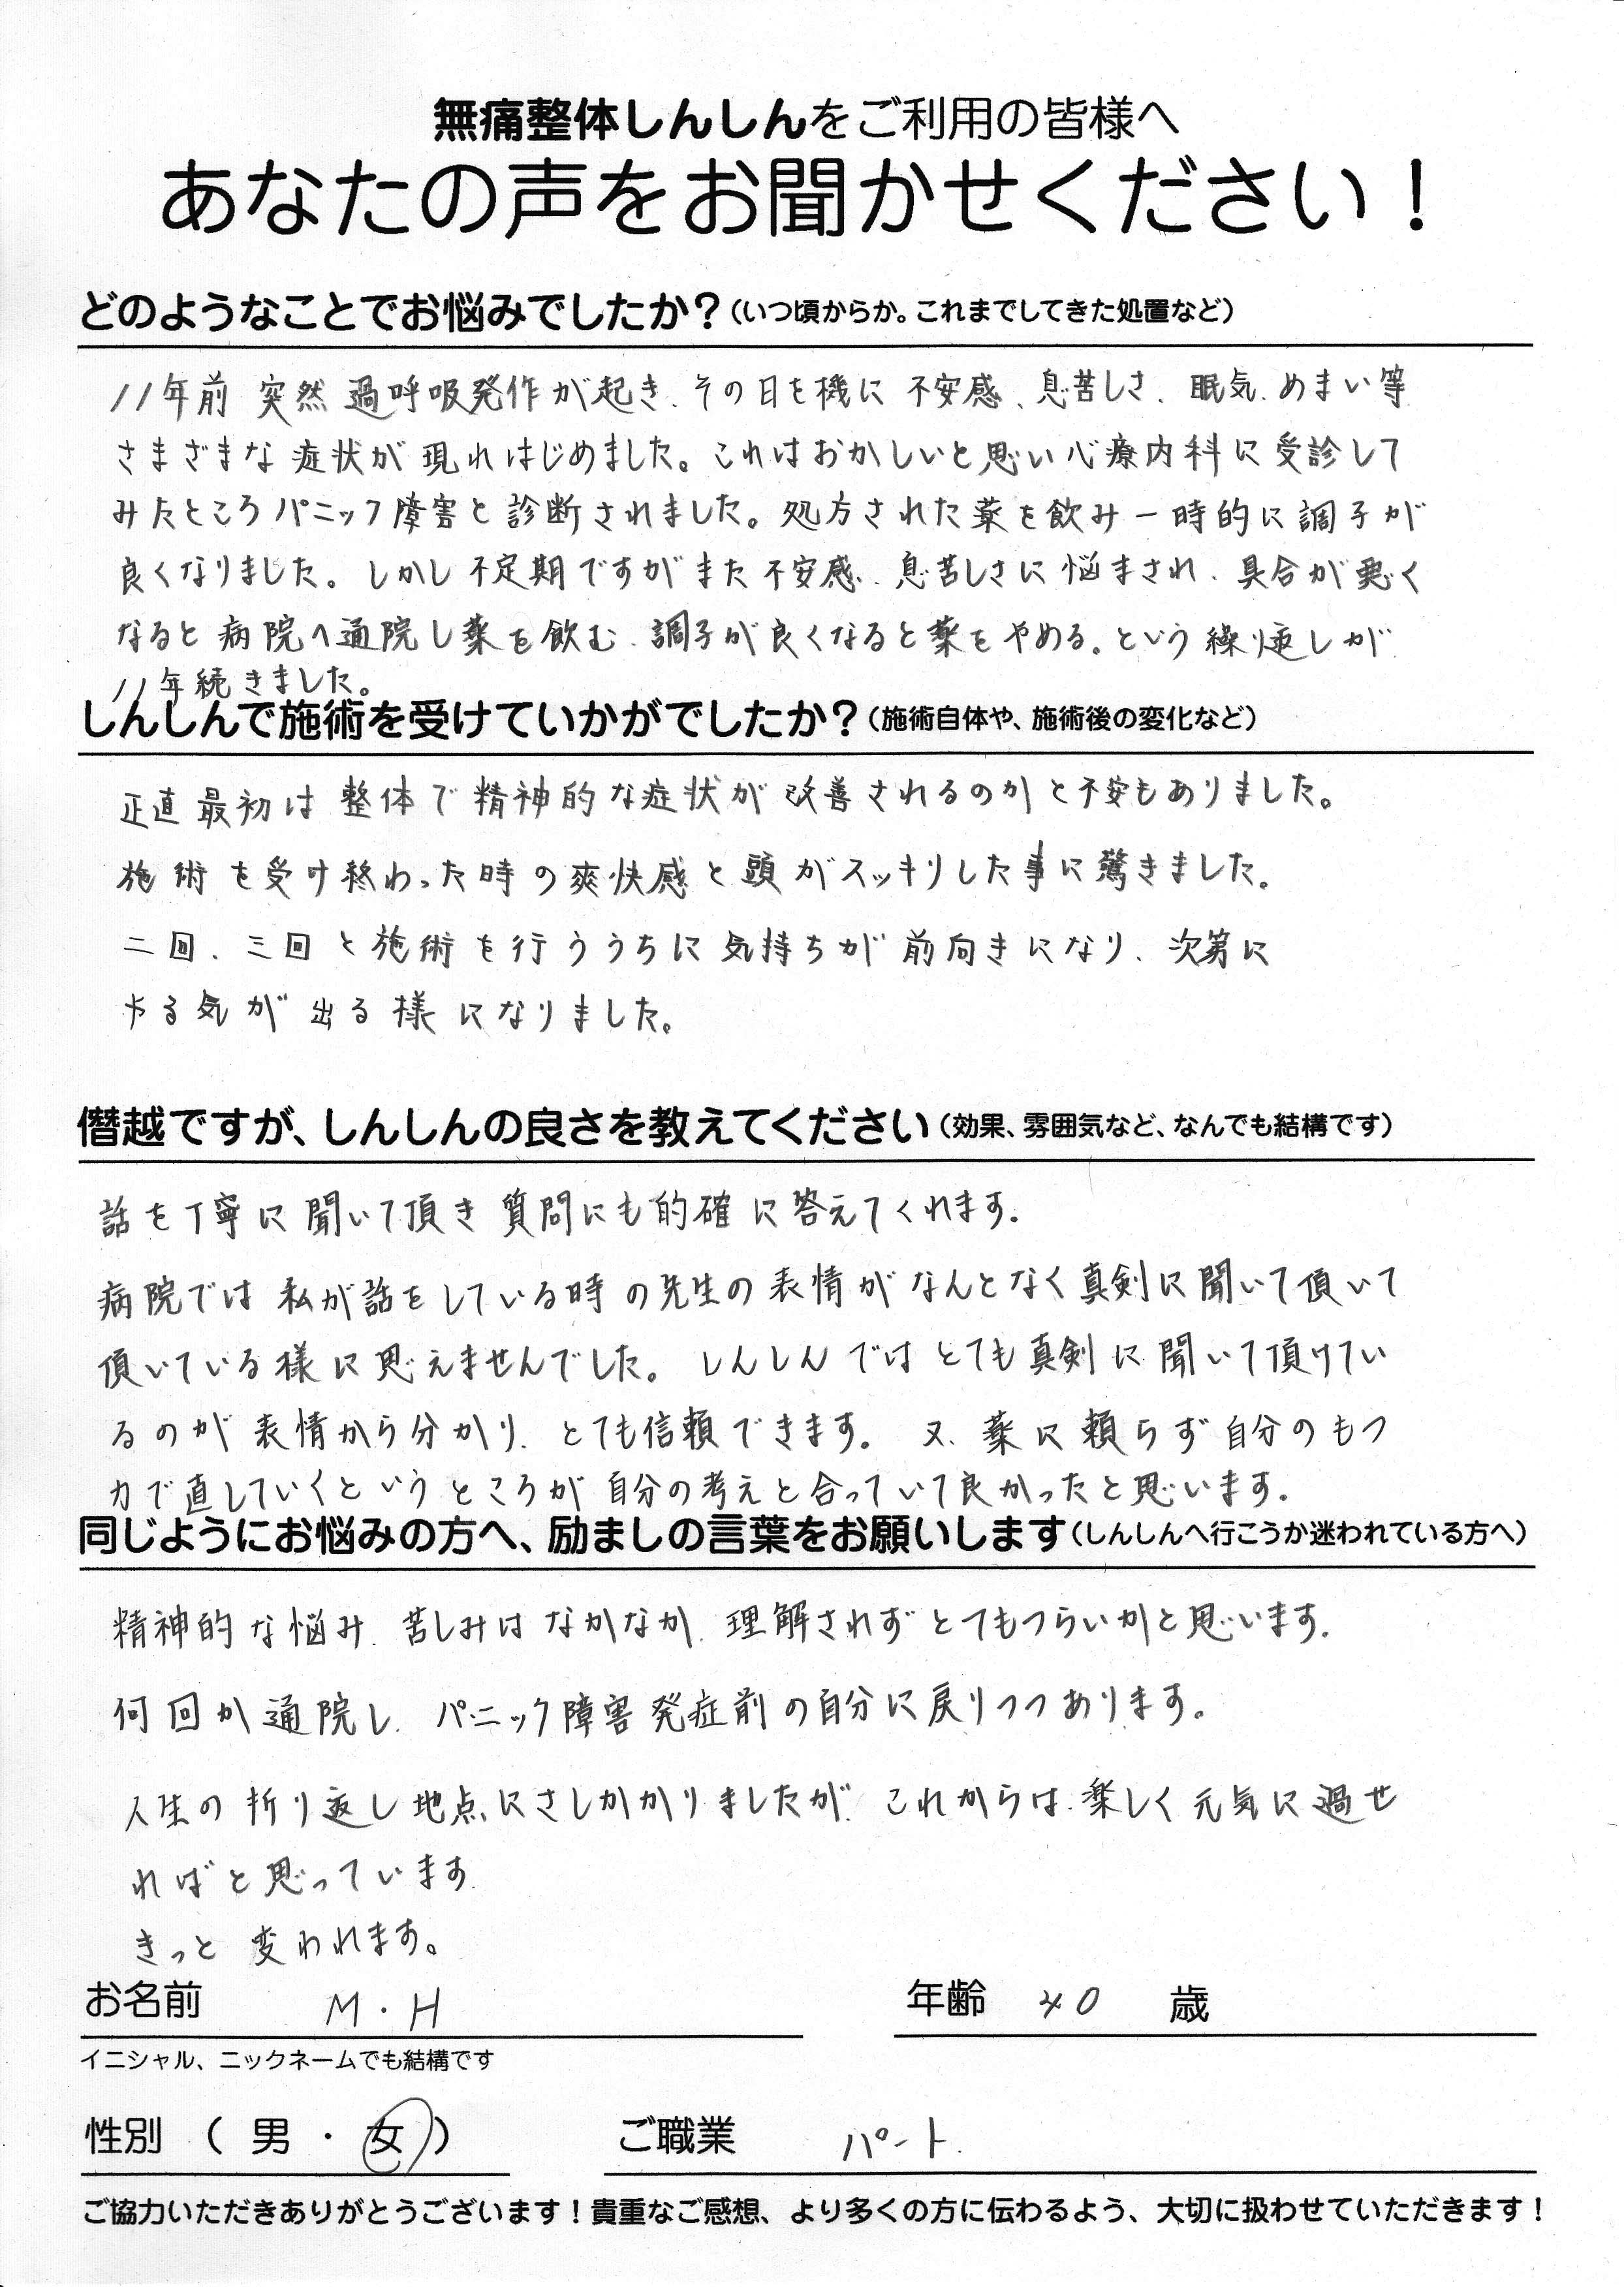 無痛整体しんしんをご利用の皆様へ
あなたの声をお聞かせください！
どのようなことでお悩みでしたか？（いつ頃からか。これまでしてきた処置など）
11年前 突然 過呼吸発作が起き、その日を機に 不安感、息苦しさ、眠気、めまい等
さまざまな 症状が 現れはじめました。これはおかしいと思い心療内科に受診して
みたところパニック障害と診断されました。処方された薬を飲み一時的に調子が
良くなりました。しかし不定期ですがまた不安感、息苦しさに悩まされ、具合が悪く
なると 病院へ通院し薬を飲む、調子が良くなると薬をやめる。という繰り返しが
11年続きました。
しんしんで施術を受けていかがでしたか？（施術自体や、施術後の変化など）
正直 最初は 整体で精神的な症状が改善されるのかと不安もありました。
施術を受け終わった時の爽快感と頭がスッキリした事に驚きました。
二回、三回と施術を行ううちに気持ちが前向きになり、次第に
やる気が出る様になりました。
僭越ですが、しんしんの良さを教えてください（効果、雰囲気など、なんでも結構です）
話を丁寧に聞いて頂き 質問にも的確に答えてくれます。
病院では私が話をしている時の先生の表情がなんとなく真剣に聞いて頂いて
頂いている様に思えませんでした。しんしんではとても真剣に聞いて頂けてい
るのが表情から分かり、とても信頼できます。又、薬に頼らず自分のもつ
力で直していくというところが自分の考えと合っていて良かったと思います。
同じようにお悩みの方へ、励ましの言葉をお願いします（しんしんへ行こうか迷われている方へ）
精神的な悩み、苦しみは なかなか、理解されずとてもつらいかと思います。
何回か通院し、パニック障害発症前の自分に戻りつつあります。
人生の折り返し地点にさしかかりましたが、これからは、楽しく元気に過せ
ればと思っています。
きっと 変われます。
お名前 M・H 年齢 40 歳
イニシャル、ニックネームでも結構です
性別（ 男 ・ 女 ） ご職業 パート
ご協力いただきありがとうございます！貴重なご感想、より多くの方に伝わるよう、大切に扱わせていただきます！